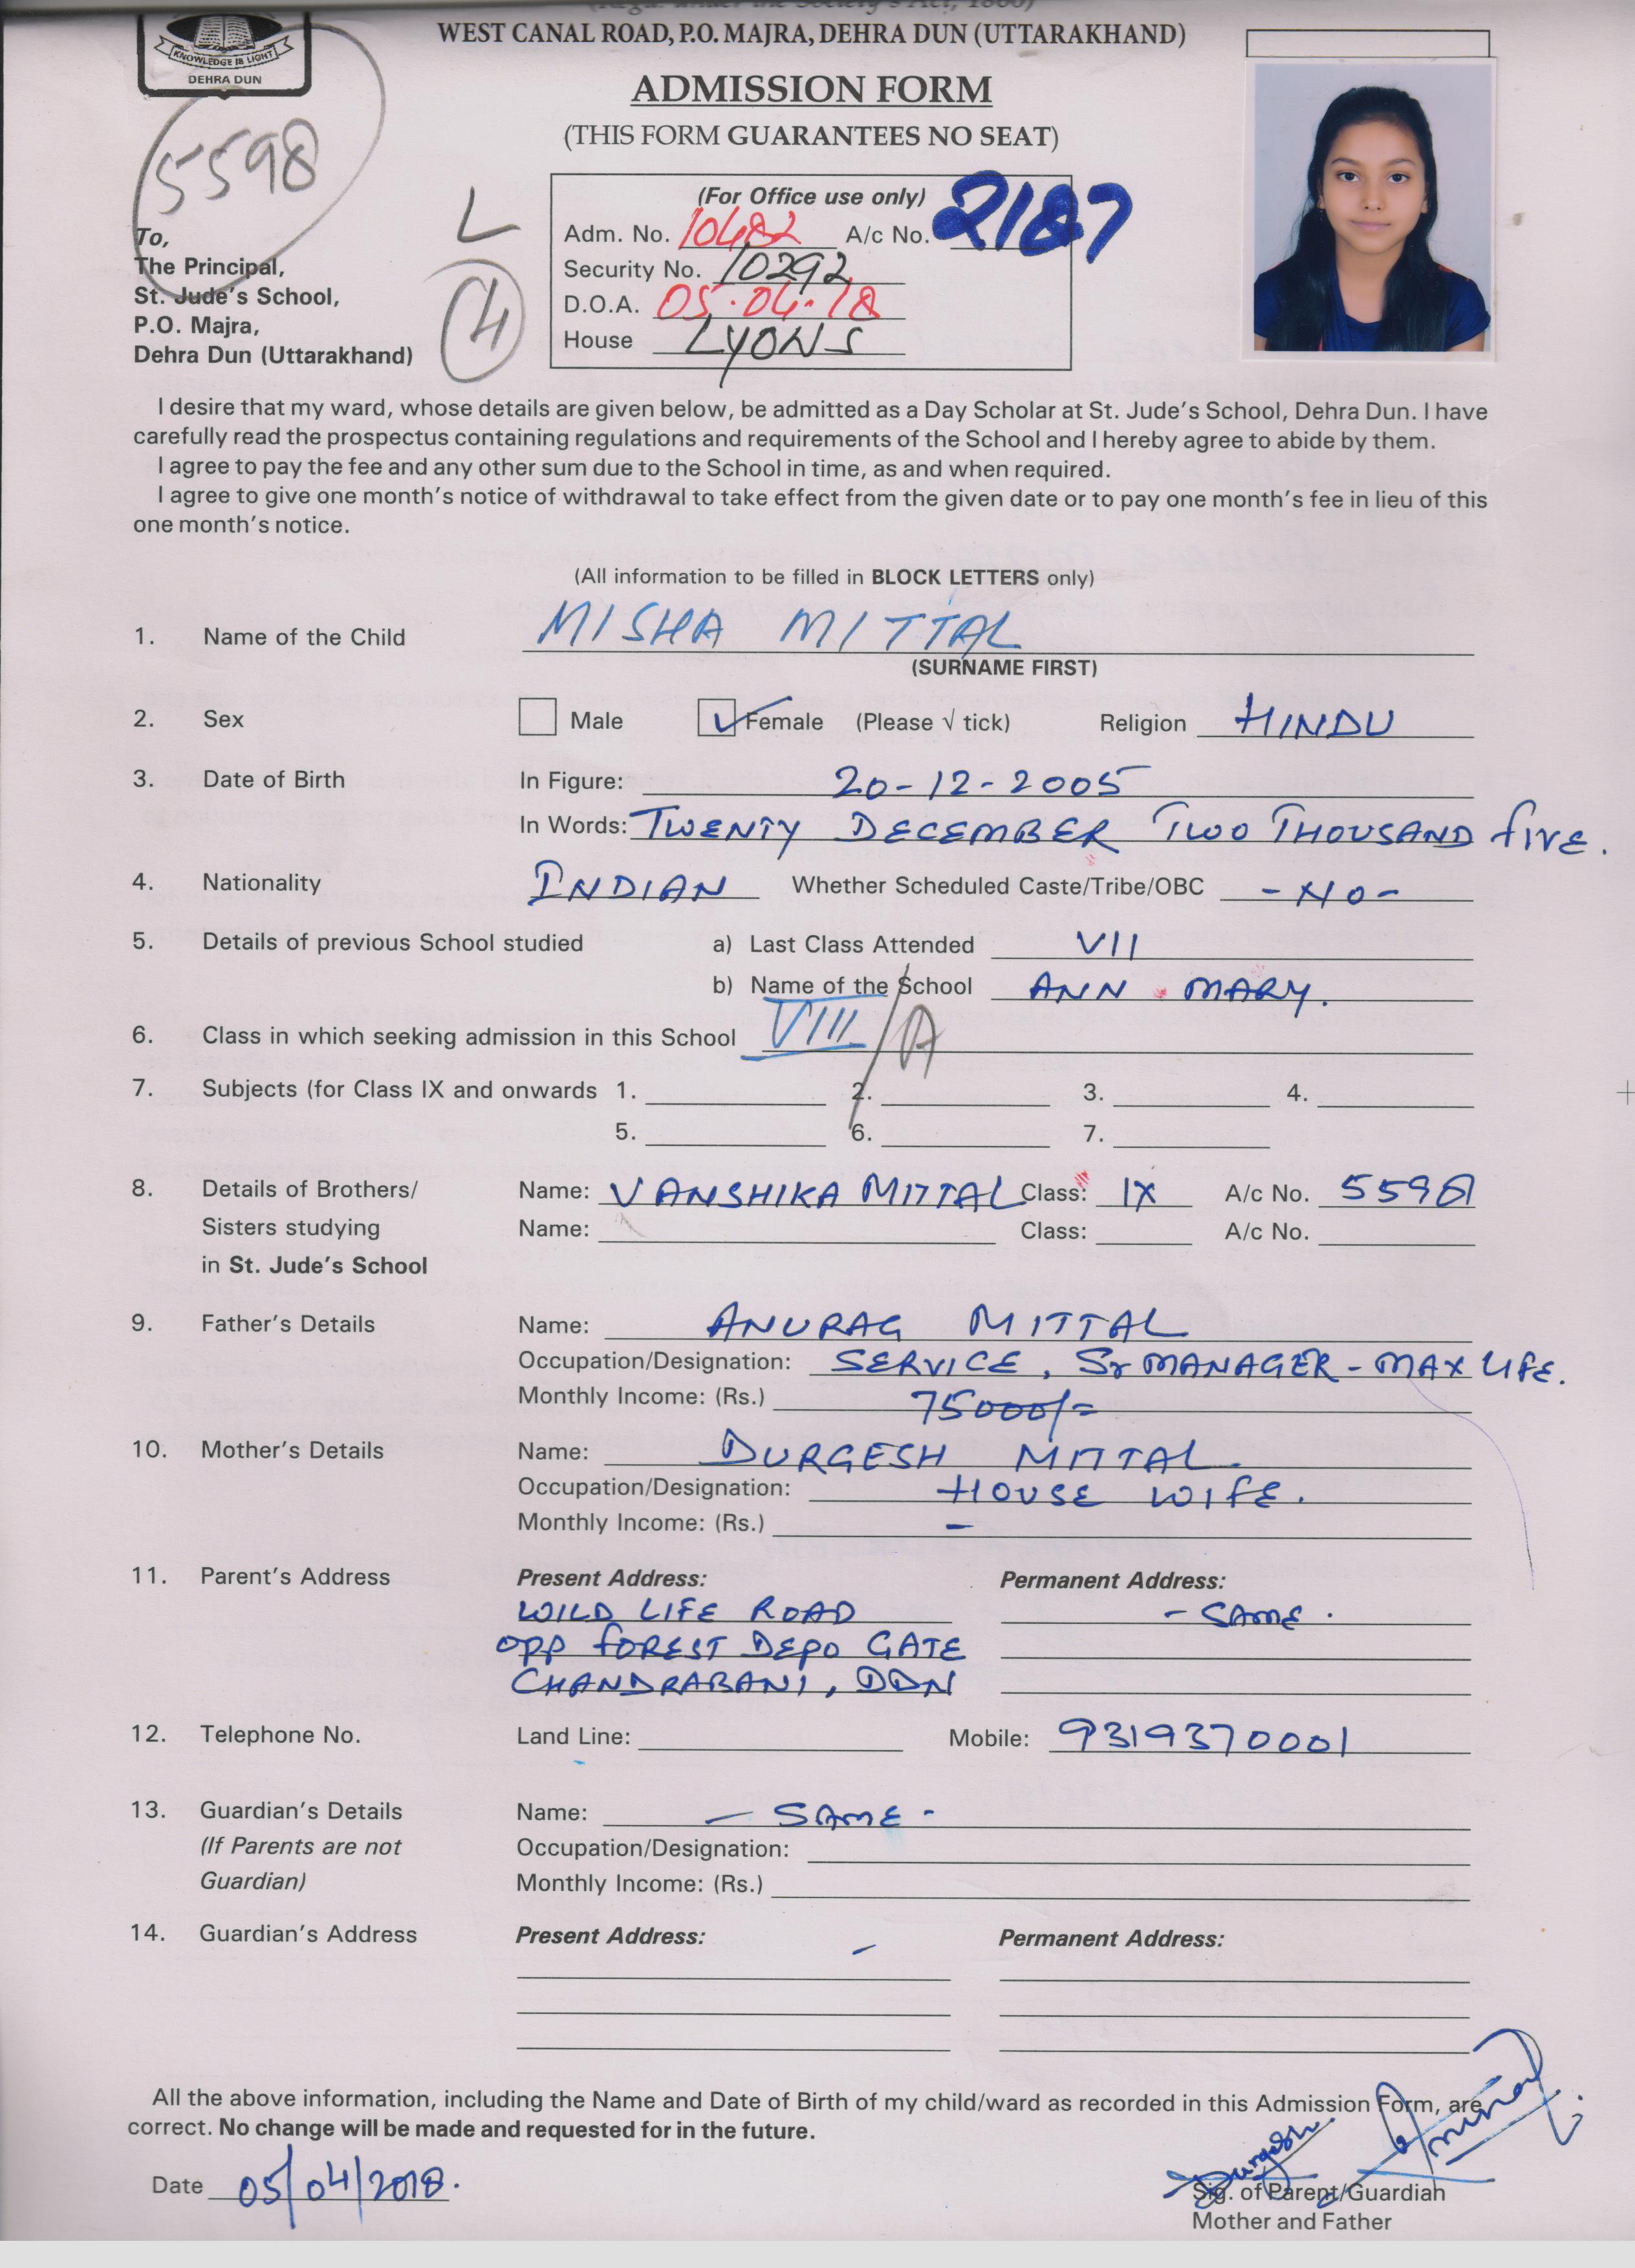 (Regd. under the Society's Act, 1860)
WEST CANAL ROAD, P.O. MAJRA, DEHRA DUN (UTTARAKHAND)
KNOWLEDGE IS LIGHT
DEHRA DUN
ADMISSION FORM
(THIS FORM GUARANTEES NO SEAT)
5598
L
4
(For Office use only)
Adm. No. 10482 A/c No. 2187
Security No. 10292
D.O.A. 05.04.18
House LYONS
To,
The Principal,
St. Jude's School,
P.O. Majra,
Dehra Dun (Uttarakhand)
I desire that my ward, whose details are given below, be admitted as a Day Scholar at St. Jude's School, Dehra Dun. I have
carefully read the prospectus containing regulations and requirements of the School and I hereby agree to abide by them.
I agree to pay the fee and any other sum due to the School in time, as and when required.
I agree to give one month's notice of withdrawal to take effect from the given date or to pay one month's fee in lieu of this
one month's notice.
(All information to be filled in BLOCK LETTERS only)
1. Name of the Child MISHA MITTAL
(SURNAME FIRST)
2. Sex Male ✓ Female (Please √ tick) Religion HINDU
3. Date of Birth In Figure: 20-12-2005
In Words: TWENTY DECEMBER TWO THOUSAND FIVE.
4. Nationality INDIAN Whether Scheduled Caste/Tribe/OBC - NO -
5. Details of previous School studied a) Last Class Attended VII
b) Name of the School ANN MARY.
6. Class in which seeking admission in this School VIII / A
7. Subjects (for Class IX and onwards 1. 2. 3. 4.
5. 6. 7.
8. Details of Brothers/ Name: VANSHIKA MITTAL Class: IX A/c No. 5598
Sisters studying Name: Class: A/c No.
in St. Jude's School
9. Father's Details Name: ANURAG MITTAL
Occupation/Designation: SERVICE, Sr MANAGER - MAX LIFE.
Monthly Income: (Rs.) 75000/=
10. Mother's Details Name: DURGESH MITTAL
Occupation/Designation: HOUSE WIFE.
Monthly Income: (Rs.) -
11. Parent's Address Present Address: Permanent Address:
WILD LIFE ROAD - SAME .
OPP FOREST DEPO GATE
CHANDRABANI, DDN
12. Telephone No. Land Line: Mobile: 9319370001
13. Guardian's Details Name: - SAME -
(If Parents are not Occupation/Designation:
Guardian) Monthly Income: (Rs.)
14. Guardian's Address Present Address: - Permanent Address:
All the above information, including the Name and Date of Birth of my child/ward as recorded in this Admission Form, are
correct. No change will be made and requested for in the future.
Durgesh
Date 05/04/2018.
Sig. of Parent/Guardian
Mother and Father